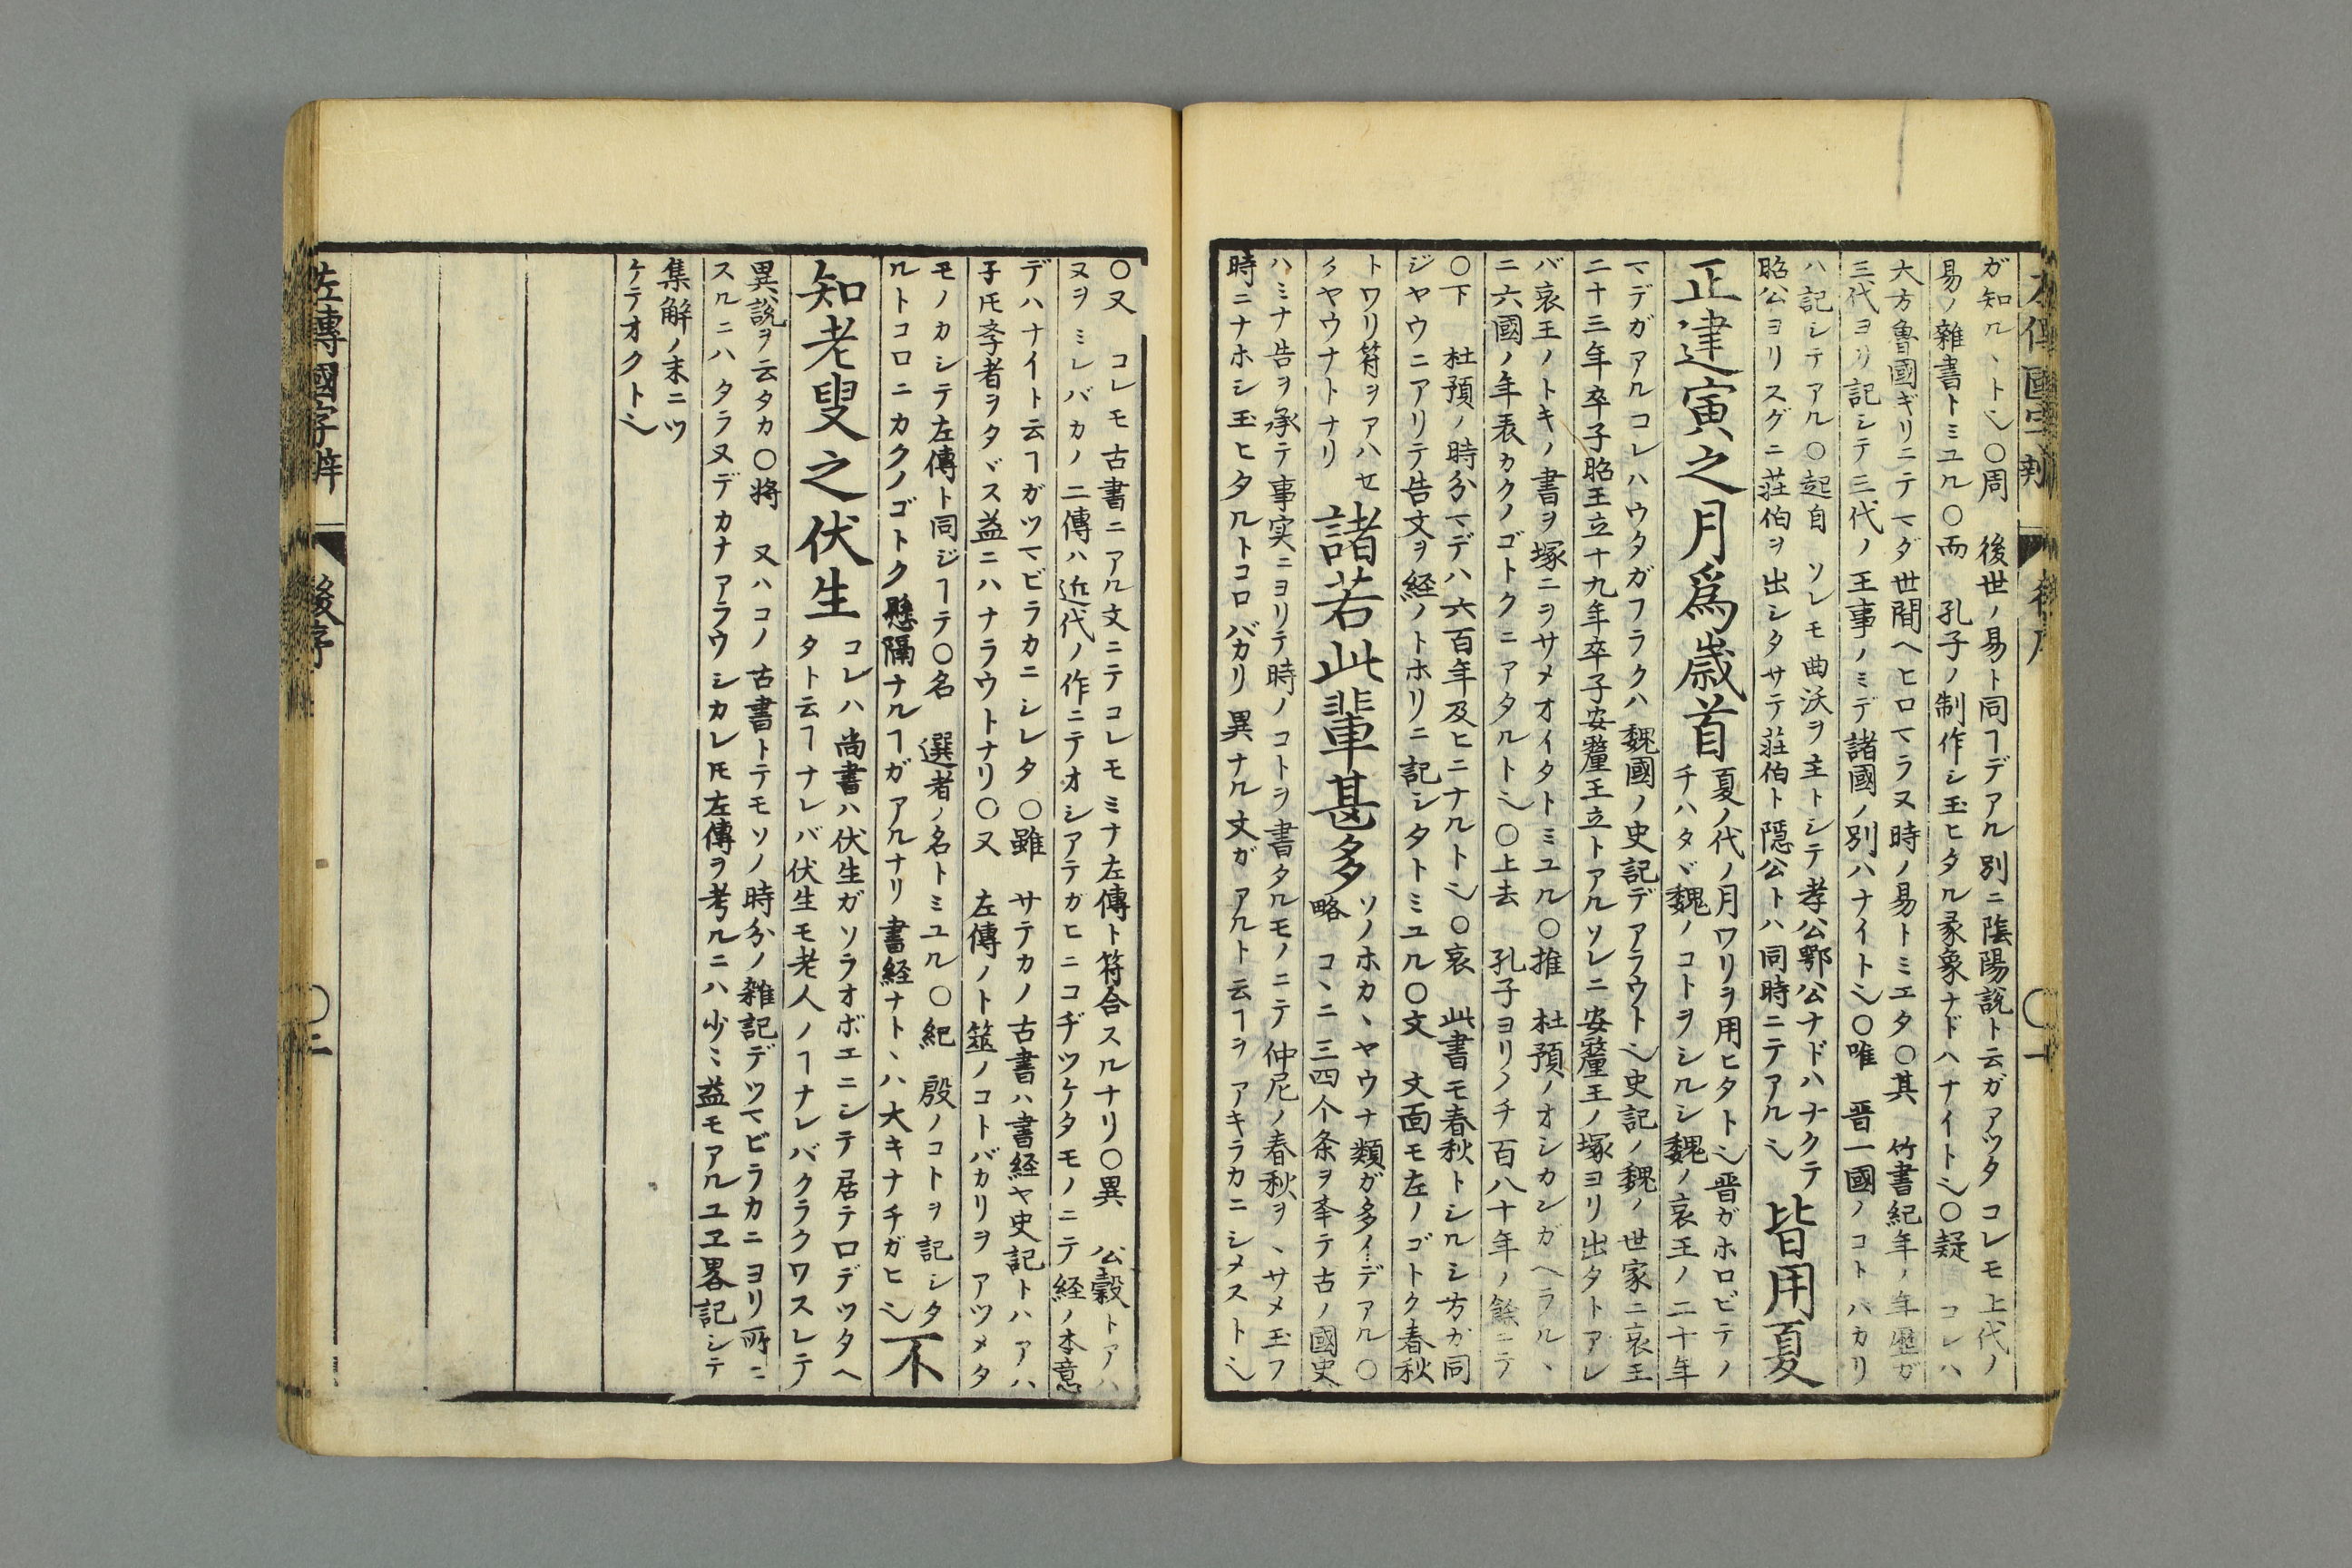 ガ知ル、ト〻〇周　後世ノ易ト同ヿデアル別ニ陰陽說ト云ガアツタコレモ上代ノ
易ノ雜書トミユル〇而　孔子ノ制作シ玉ヒタル彖象ナドハナイト〻〇疑　コレハ
大方魯國ギリニテマダ世間ヘヒロマラヌ時ノ易トミエタ〇其　竹書紀年ノ年歴ガ
三代ヨリ記シテ三代ノ王事ノミデ諸國ノ別ハナイト〻〇唯　晋一國ノコトバカリ
ハ記シテアル〇起自　ソレモ曲沃ヲ主トシテ孝公鄂公ナドハナクテ
昭公ヨリスグニ莊伯ヲ出シタサテ莊伯ト隠公トハ同時ニテアル〻
皆用夏
正建寅之月爲歳首
夏ノ代ノ月ワリヲ用ヒタト〻晋ガホロビテノ
チハタヾ魏ノコトヲシルシ魏ノ哀王ノ二十年
マデガアルコレハウタガフラクハ魏國ノ史記デアラウト〻史記ノ魏ノ世家ニ哀王
二十三年卒子昭王立十九年卒子安釐王立トアルソレニ安釐王ノ塚ヨリ出タトアレ
バ哀王ノトキノ書ヲ塚ニヲサメオイタトミユル〇推　杜預ノオシカンガヘラル、
ニ六國ノ年表カクノゴトクニアタルト〻〇上去　孔子ヨリノチ百八十年ノ餘ニテ
〇下　杜預ノ時分マデハ六百年及ヒニナルト〻〇哀　此書モ春秋トシルシ方ガ同
ジヤウニアリテ告文ヲ経ノトホリニ記シタトミユル〇文　文面モ左ノゴトク春秋
トワリ符ヲアハセ
タヤウナトナリ
諸若此輩甚多
ソノホカ、ヤウナ類ガ多イデアル〇
略　コ、ニ三四个条ヲ挙テ古ノ國史
ハミナ告ヲ承テ事実ニヨリテ時ノコトヲ書タルモノニテ仲尼ノ春秋ヲ、サメ玉フ
時ニナホシ玉ヒタルトコロバカリ異ナル文ガアルト云ヿヲアキラカニシメスト〻
〇又　コレモ古書ニアル文ニテコレモミナ左傳ト符合スルナリ〇異　公穀トアハ
ヌヲミレバカノ二傳ハ近代ノ作ニテオシアテガヒニコヂツケタモノニテ経ノ本意
デハナイト云ヿガツマビラカニシレタ〇雖　サテカノ古書ハ書経ヤ史記トハアハ
子𪜈李者ヲタヾス益ニハナラウトナリ〇又　左傳ノト筮ノコトバカリヲアツメタ
モノカシテ左傳ト同ジヿテ〇名　選者ノ名トミユル〇紀　殷ノコトヲ記シタ
ルトコロニカクノゴトク懸隔ナルヿガアルナリ書経ナト、ハ大キナチガヒ〻
不
知老叟之伏生
コレハ尚書ハ伏生ガソラオボエニシテ居テロデツタヘ
タト云ヿナレバ伏生モ老人ノヿナレバクラクワスレテ
異說ヲ云タカ〇将　又ハコノ古書トテモソノ時分ノ雑記デツマビラカニヨリ所ニ
スルニハタラヌデカナアラウシカレ𪜈左傳ヲ考ルニハ少ミ益モアルユヱ畧記シテ
集解ノ末ニツ
ケテオクト〻
左傳國字辨　後序　〇二